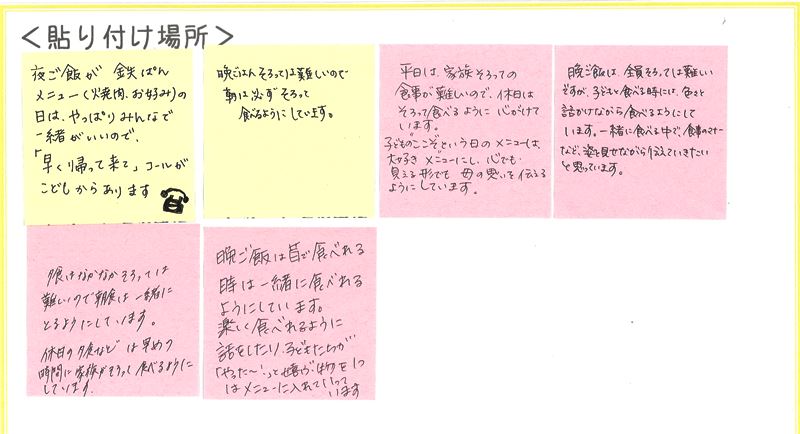 ＜貼り付け場所＞
夜ご飯が 鉄ぱん
メニュー(焼肉、お好み)の
日は、やっぱりみんなで
一緒がいいので、
「早く帰って来て」コールが
こどもからあります
晩ごはんそろっては難しいので
朝は必ずそろって
食べるようにしています。
平日は、家族そろっての
食事が難しいので、休日は
そろって食べるように 心がけて
います。
子どもの"ここぞ"という日のメニューは、
大好き メニューにし、心でも
見える形でも 母の思いを伝える
ようにしています。
晩ご飯は、全員そろっては難しい
ですが、子どもと食べる時には、色々と
話かけながら食べるようにして
います。一緒に食べる中で、食事のマナー
など、姿を見せながら伝えていきたい
と思っています。
夕食はなかなかそろっては
難しいので朝食は一緒に
とるようにしています。
休日の夕食など は早めの
時間に家族がそろって食べるように
しています。
晩ご飯は皆で食べれる
時は一緒に食べれる
ようにしています。
楽しく食べれるように
話をしたり、子どもたちが
「やった〜!」と喜ぶ物を1つ
はメニューに入れていって
います